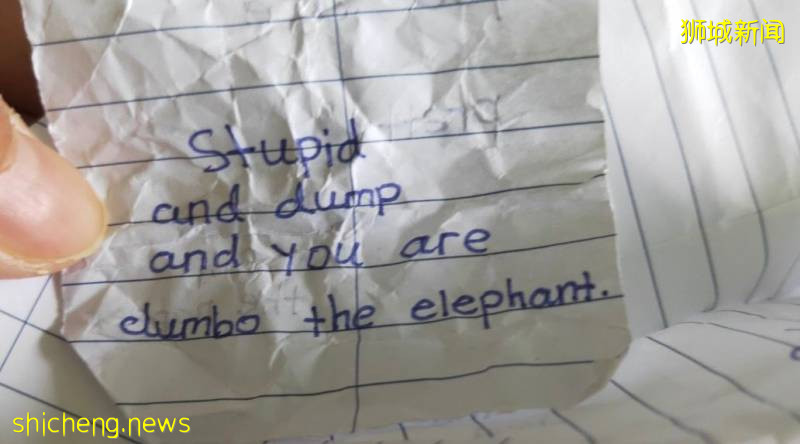 狮城新闻
Stupid
and dump
and you are
dumbo the elephant.
shicheng.news